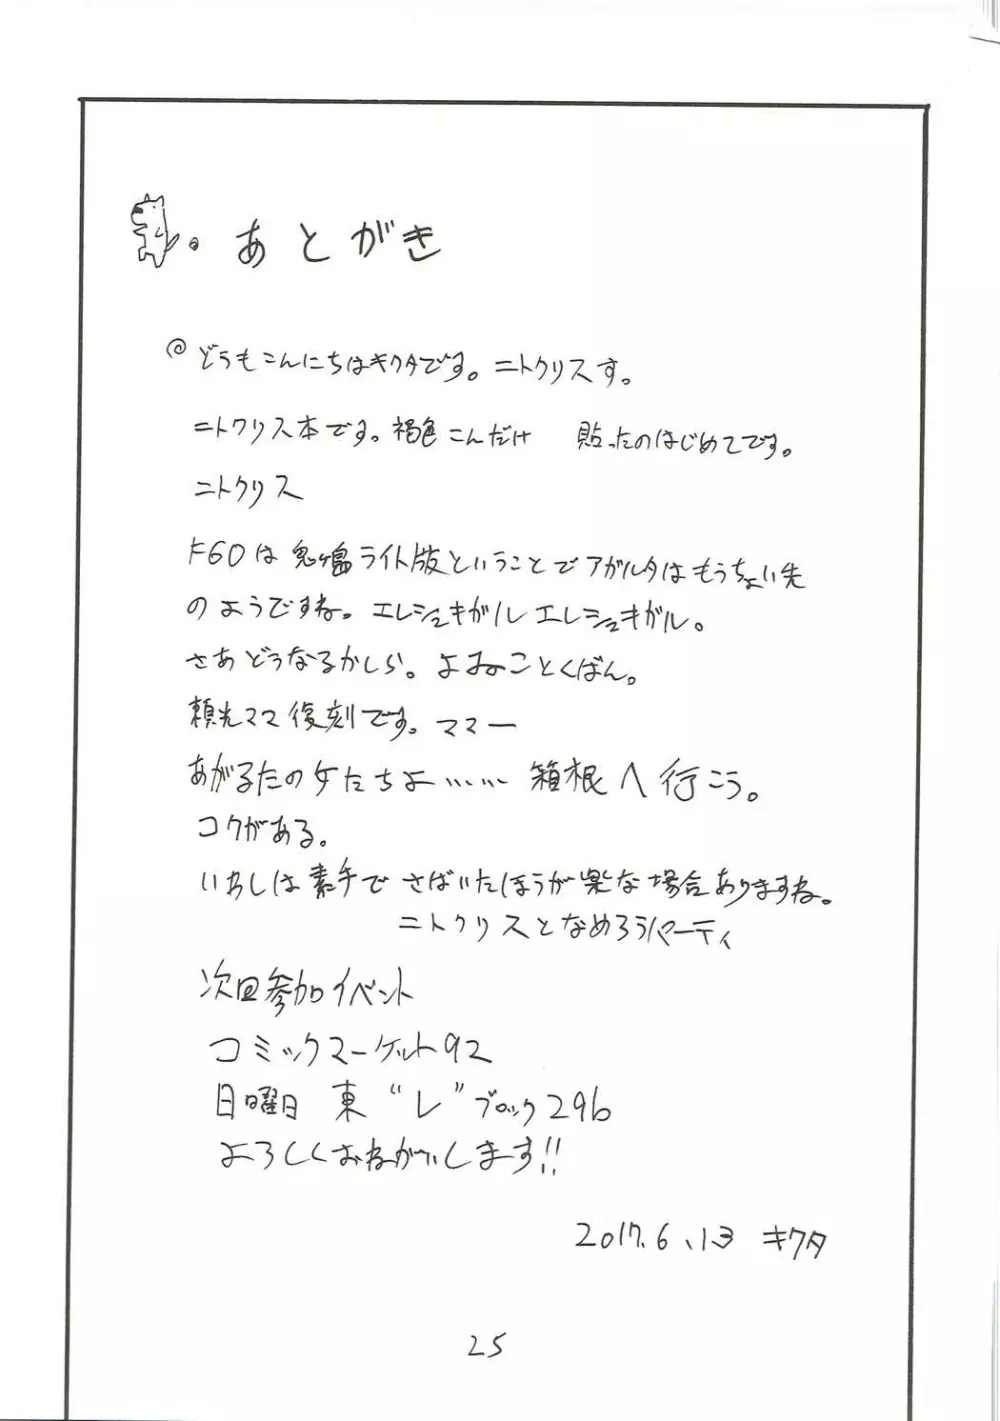 あとがき
@どうもこんにちはキクタです。ニトクリスす。
ニトクリス本です。褐色こんだけ 貼ったのはじめてです。
ニトクリス
FGOは鬼ヶ島ライト版ということでアガルタはもうちょい先
のようですね。エレシュキガル エレシュキガル。
さあどうなるかしら。よみのことくばん。
頼光ママ復刻です。ママー
あがるたの女たちよ…… 箱根へ行こう。
コクがある。
いわしは素手でさばいたほうが楽な場合ありますね。
ニトクリスとなめろうパーティ
次回参加イベント
コミックマーケット92
日曜日 東"レ"ブロック29b
よろしくおねがいします!!
2017.6.13 キクタ
25